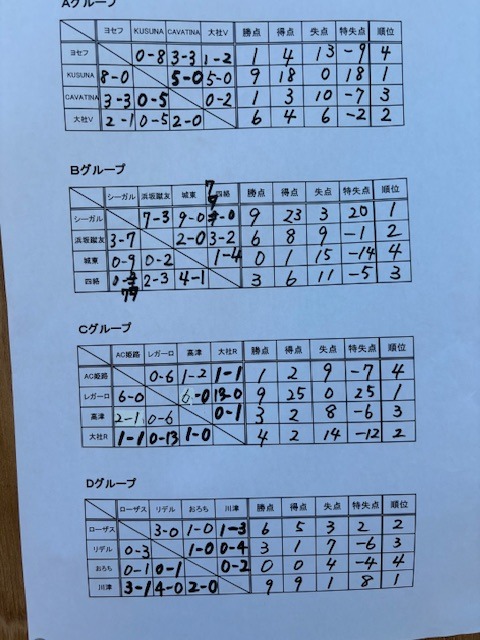 Aグループ
ヨセフ KUSUNA CAVATINA 大社V 勝点 得点 失点 特失点 順位
ヨセフ 0-8 3-3 1-2 1 4 13 -9 4
KUSUNA 8-0 5-0 5-0 9 18 0 18 1
CAVATINA 3-3 0-5 0-2 1 3 10 -7 3
大社V 2-1 0-5 2-0 6 4 6 -2 2
Bグループ
シーガル 浜坂蹴友 城東 四絡 勝点 得点 失点 特失点 順位
シーガル 7-3 9-0 7-0 9 23 3 20 1
浜坂蹴友 3-7 2-0 3-2 6 8 9 -1 2
城東 0-9 0-2 1-4 0 1 15 -14 4
四絡 0-7 2-3 4-1 3 6 11 -5 3
Cグループ
AC姫路 レガーロ 高津 大社R 勝点 得点 失点 特失点 順位
AC姫路 0-6 1-2 1-1 1 2 9 -7 4
レガーロ 6-0 6-0 13-0 9 25 0 25 1
高津 2-1 0-6 0-1 3 2 8 -6 3
大社R 1-1 0-13 1-0 4 2 14 -12 2
Dグループ
ローザス リデル おろち 川津 勝点 得点 失点 特失点 順位
ローザス 3-0 1-0 1-3 6 5 3 2 2
リデル 0-3 1-0 0-4 3 1 7 -6 3
おろち 0-1 0-1 0-2 0 0 4 -4 4
川津 3-1 4-0 2-0 9 9 1 8 1